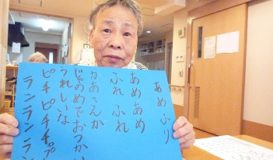 あめふり
あめ あめ
ふれ ふれ
かあさんが
じゃのめでお
うれしいな
ピチピチ
ランランラン